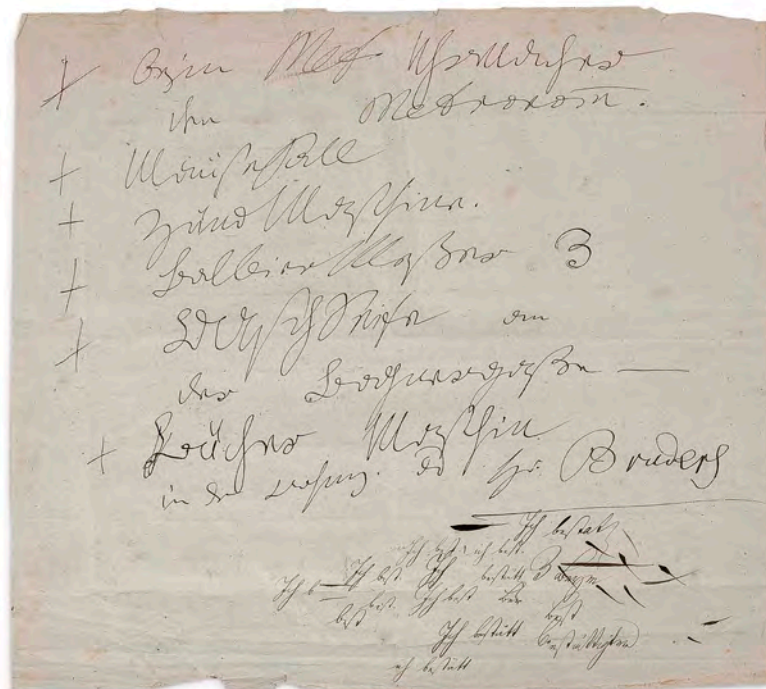 + beym Met. Uhrmacher
den Metronom.
+ Mäusefall
+ ZündMaschine.
+ BalbierMeßer 3
+ WaschSeife an
der Bognergaße —
+ Bücher Maschin
in der Wohnung. Hr. Bruders
Ich bestat
Ich best ich best.
Ich b Ich best. Ich bestätt 3
best best. Ich best best
Ich bestätt
ich bestätt